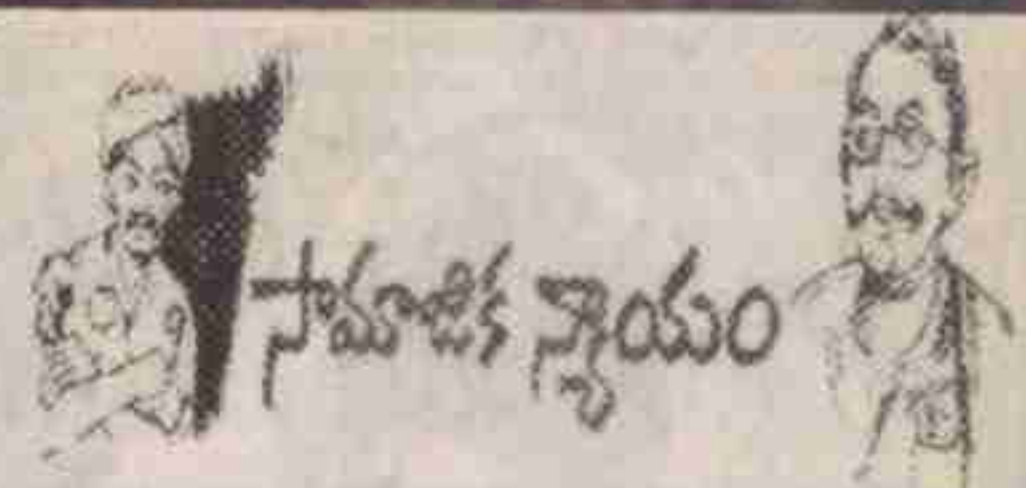 సామాజిక న్యాయం